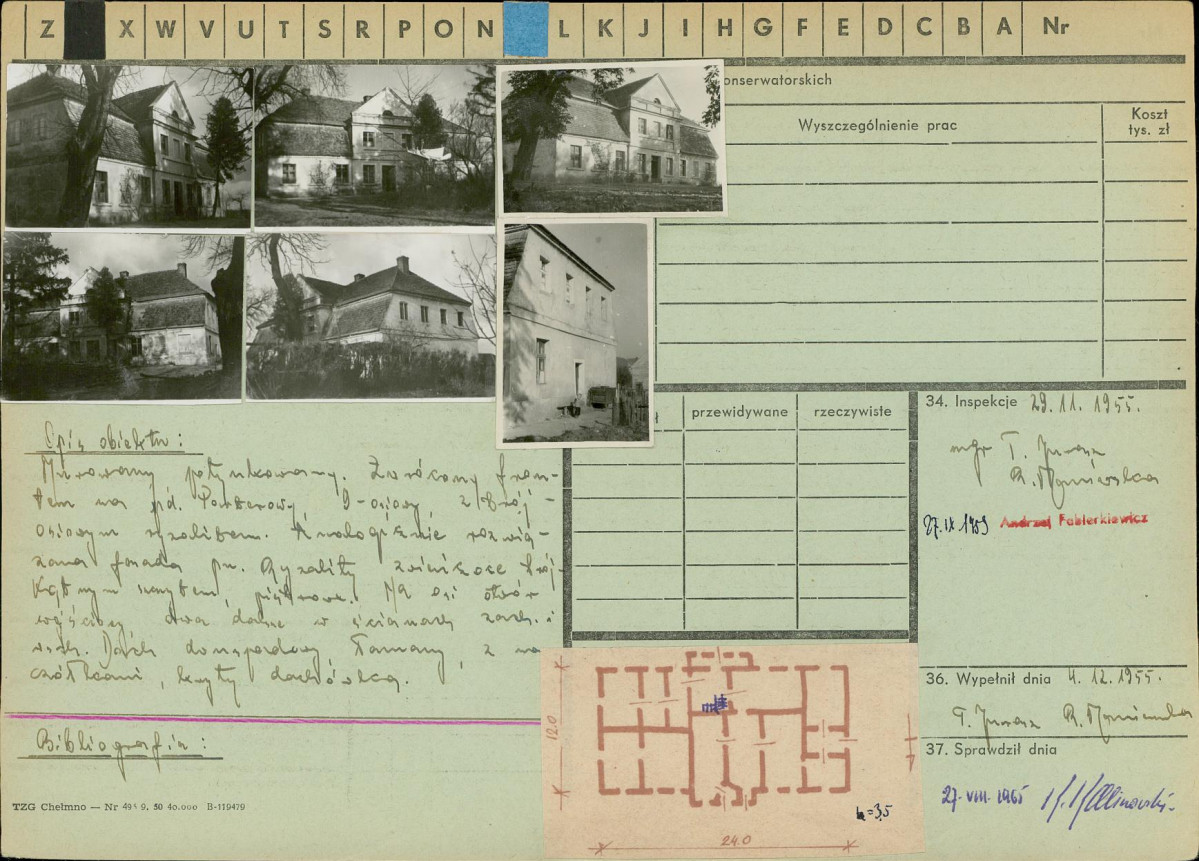 Z X W V U T S R P O N L K J I H G F E D C B A Nr
onserwatorskich
Wyszczególnienie prac
Koszt
tys. zł
przewidywane
rzeczywiste
34. Inspekcje 29.11.1955.
mgr T. Jurasz
27.IX 1959 Andrzej Fablerkiewicz
Opis obiektu:
Murowany potynkowany. Zwrócony fron-
tem na pd. Parterowy, 9-osiowy, z trój-
osiowym ryzalitem. Analogicznie rozwią-
zana fasada pn. Ryzality zwieńczone trój-
kątnym szczytem, piętrowe. Na osi otwór
wejściowy, dwa dalsze w ścianach zach. i
wsch. Dach dwuspadowy, łamany, z na-
czółkami, kryty dachówką.
Bibliografia:
TZG Chełmno — Nr 9. 50 40.000 B-119479
12.0
24.0
h=3,5
36. Wypełnił dnia 4.12.1955.
T. Jurasz R.
37. Sprawdził dnia
27.VIII.1965